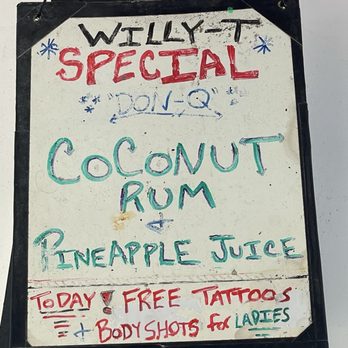 WILLY-T
SPECIAL
"DON-Q"
COCONUT
RUM
+
PINEAPPLE JUICE
TODAY! FREE TATTOOS
+ BODYSHOTS for LADIES